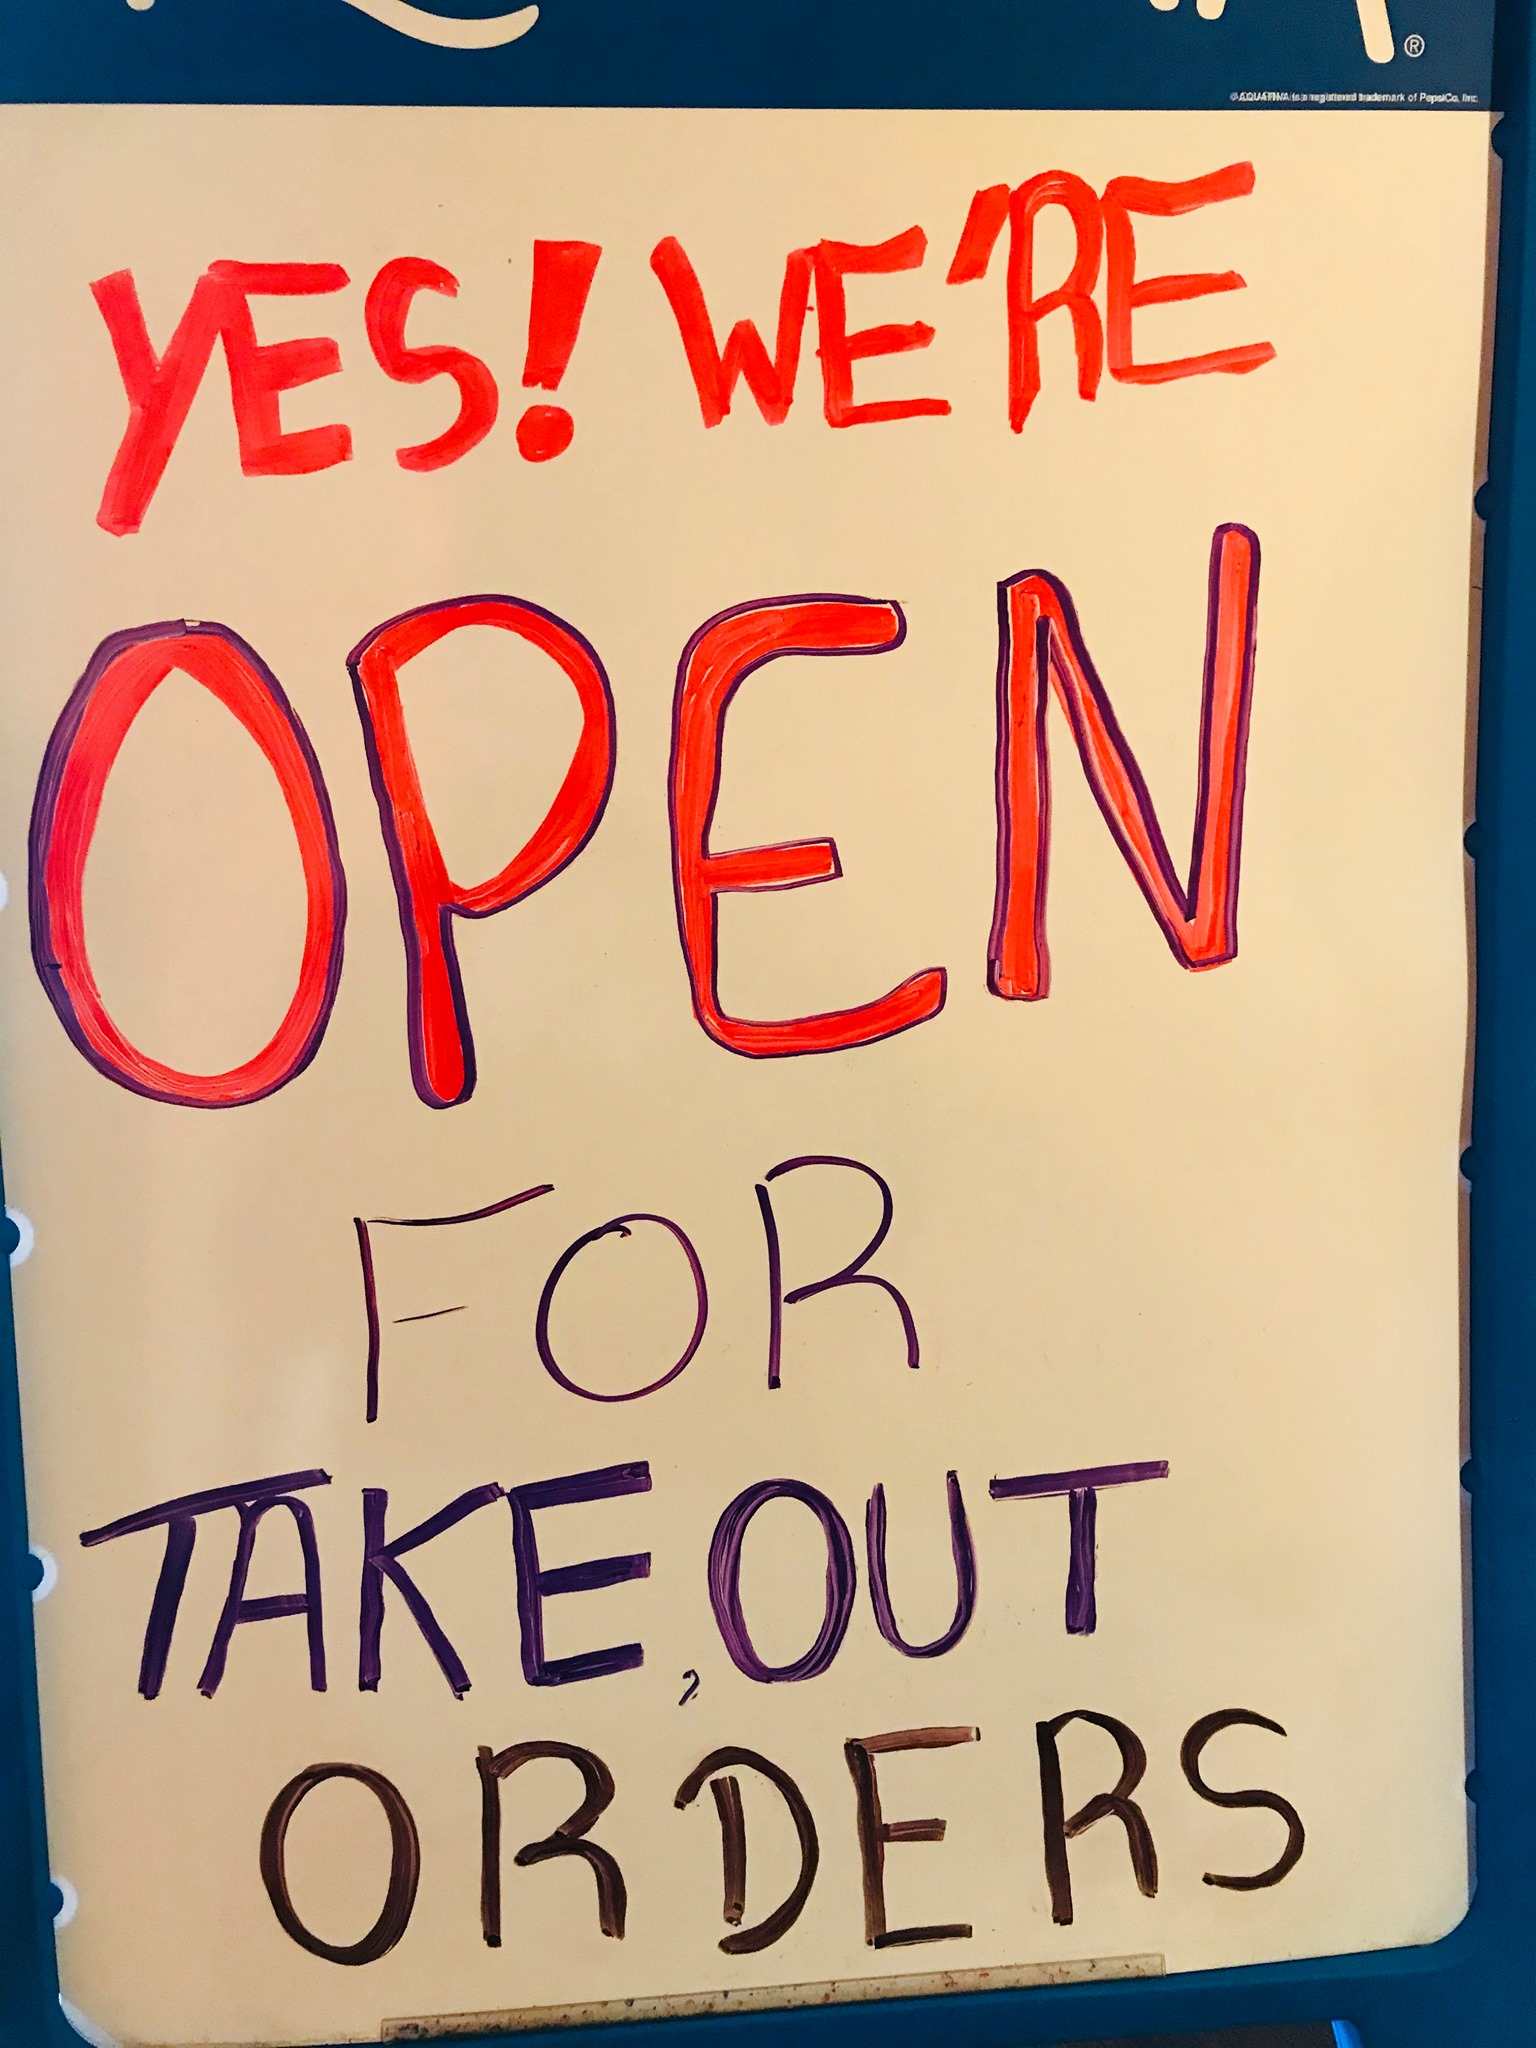 ®
© AQUAFINA is a registered trademark of PepsiCo, Inc.
YES! WE'RE
OPEN
FOR
TAKE,OUT
ORDERS